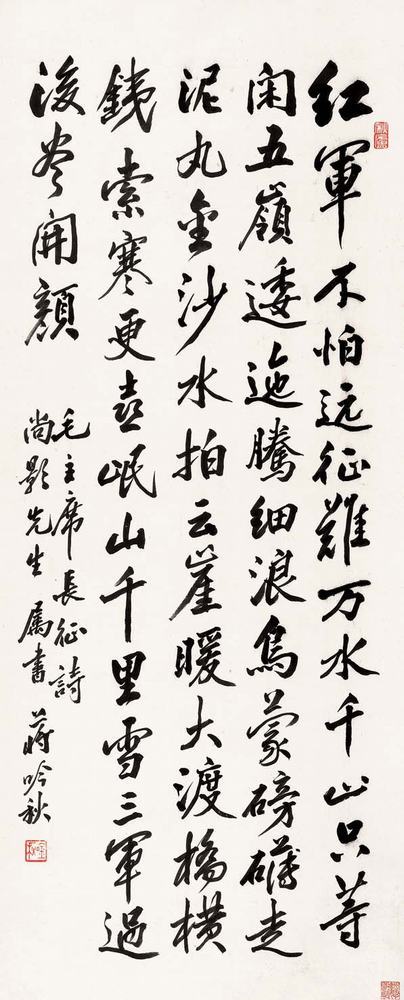 红軍不怕远征難万水千山只等
闲五嶺逶迤騰细浪烏蒙磅礴走
泥丸金沙水拍云崖暖大渡橋横
銕索寒更喜岷山千里雪三軍過
後尽開顔
毛主席長征詩
尚影先生属書 蒋吟秋